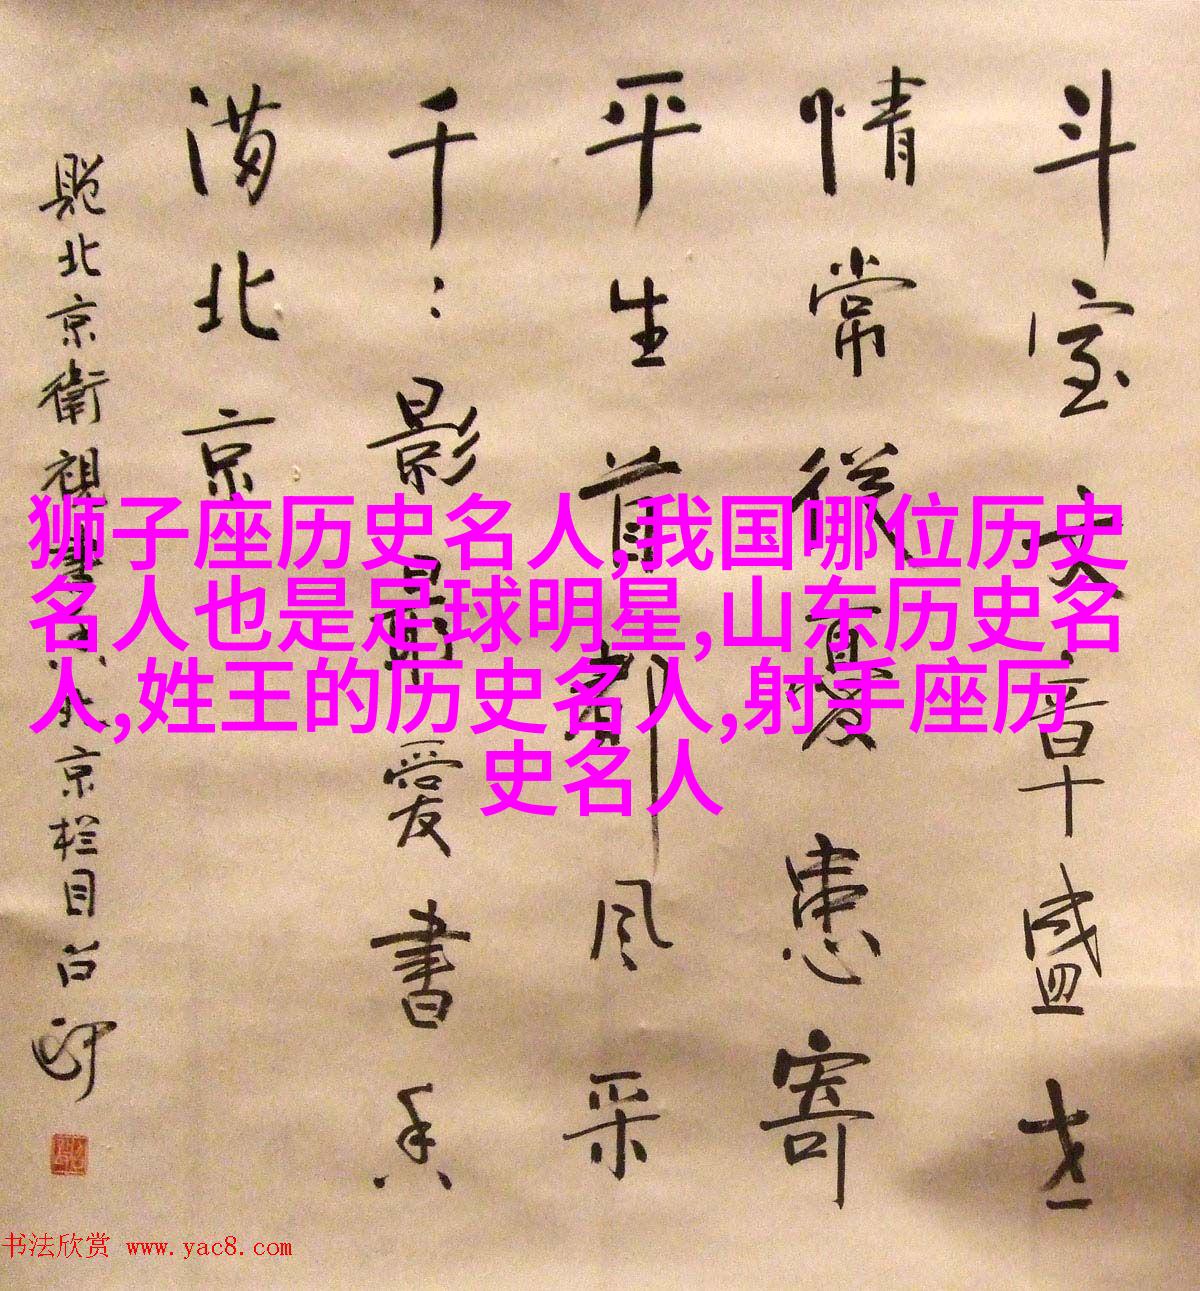 斗室文章盛世
情常從憂患寄
平生首都风采
千影最愛書香
满北京
北京衛視書香北京栏目
狮子座历史名人,我国哪位历史
名人也是足球明星,山东历史名
人,姓王的历史名人,射手座历
史名人
书法欣赏 www.yac8.com